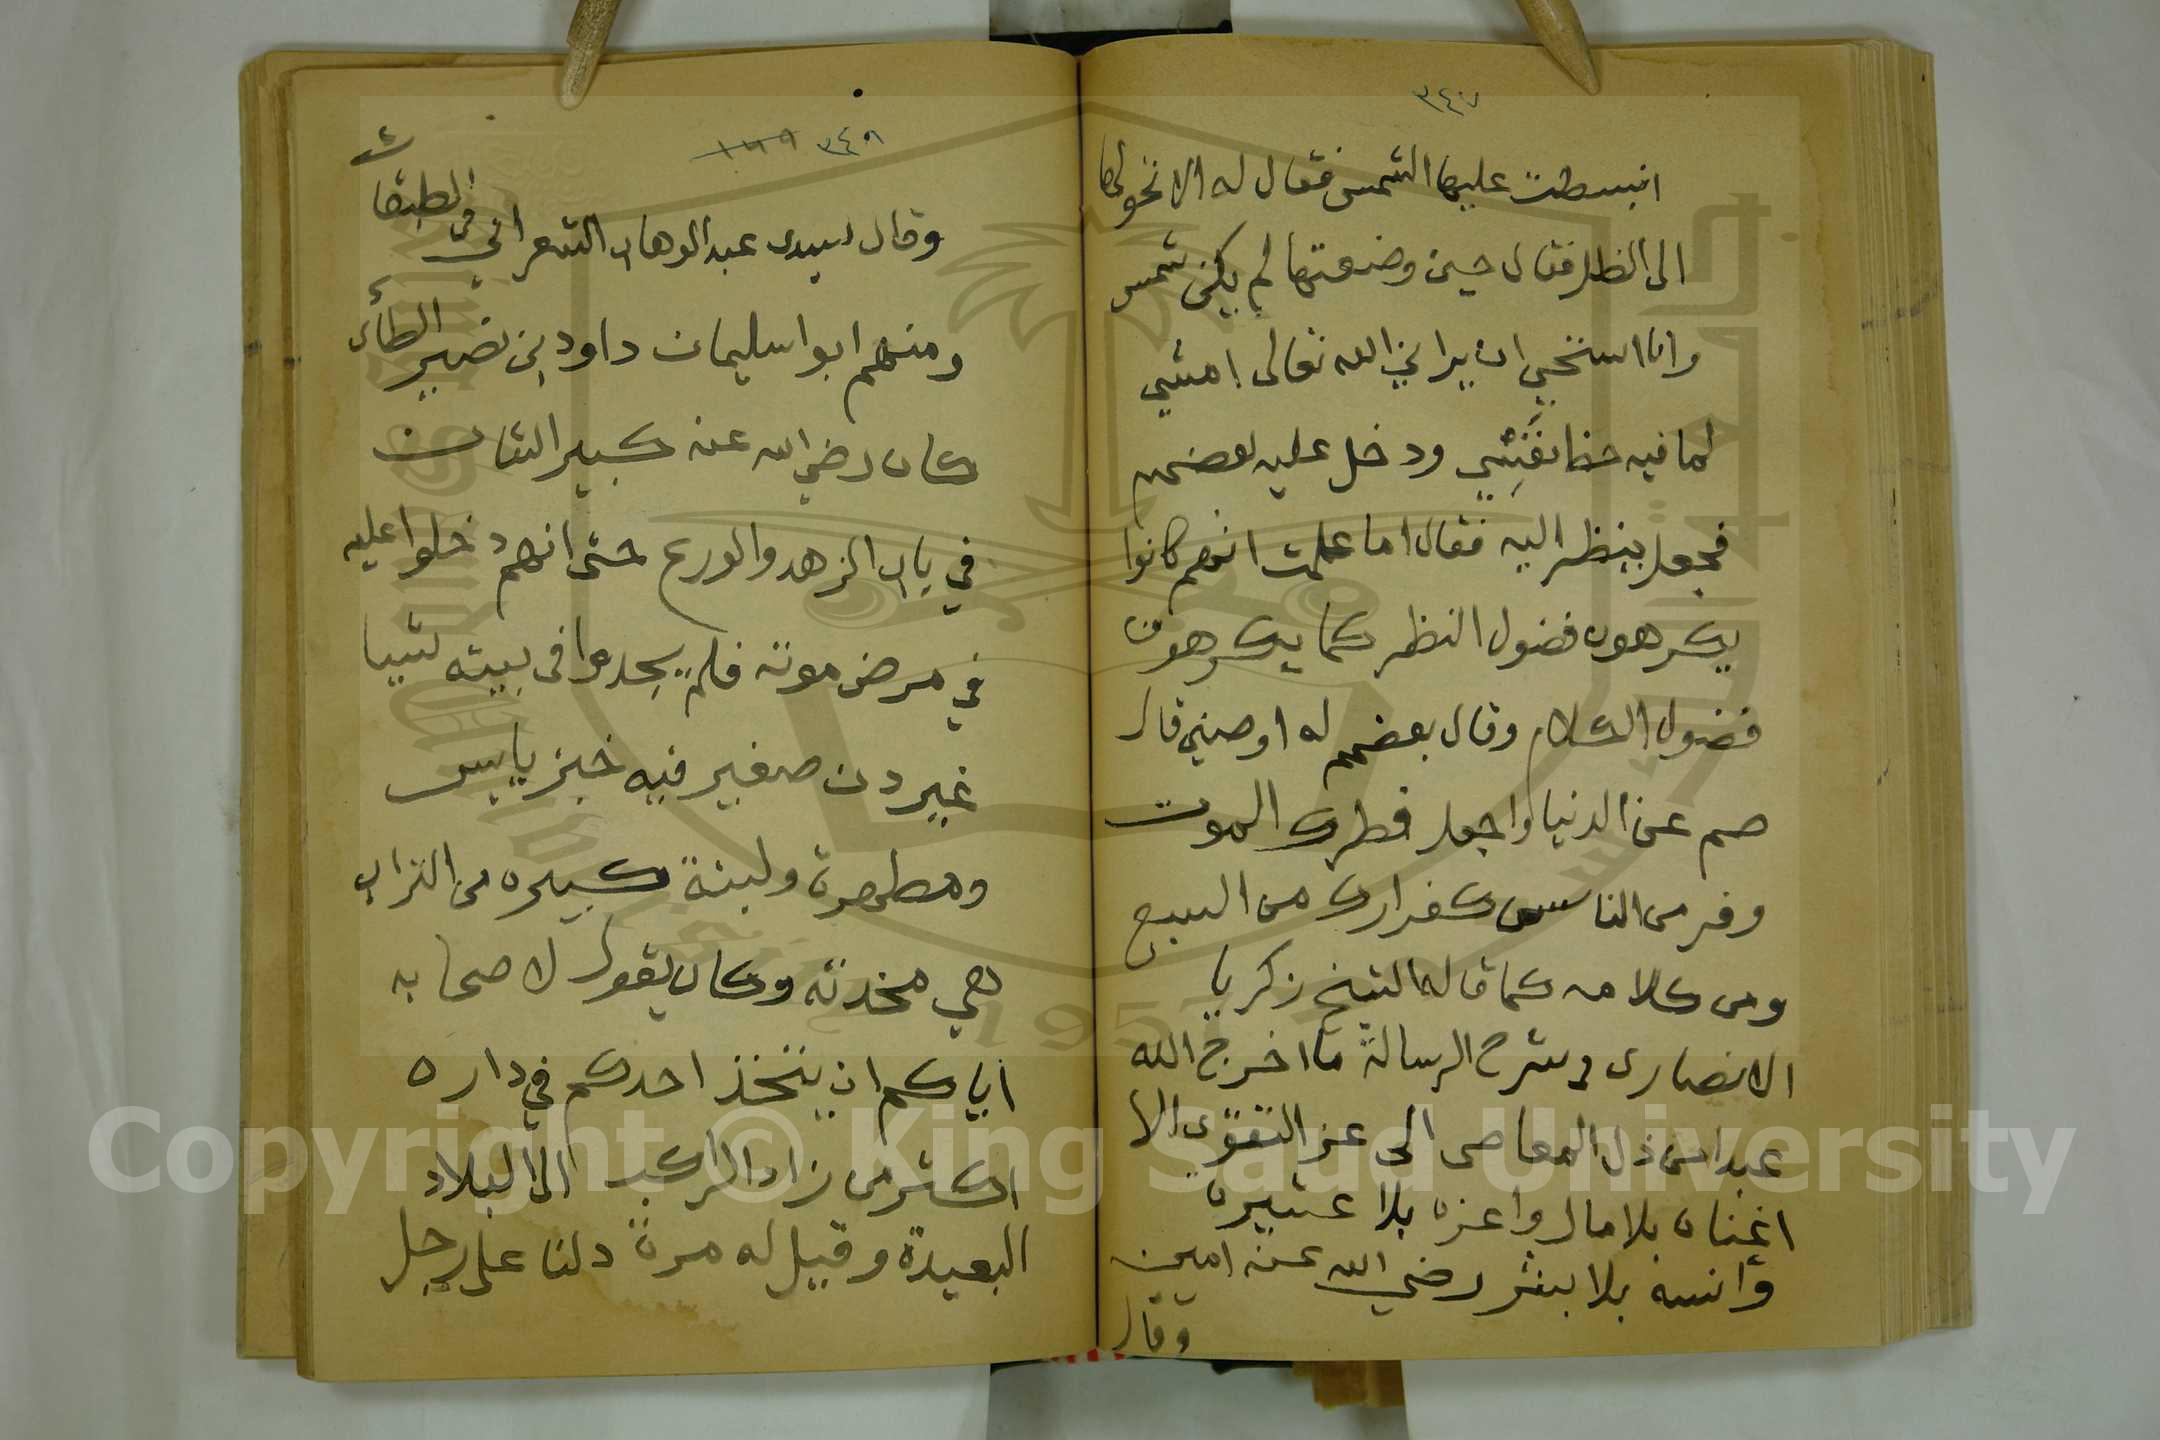 ٣٤٧
انبسطت عليها الشمس فقال له الا تحولها
الى الظل فقال حين وضعتها لم يكن شمس
وانا استحيي ان يراني الله تعالى امشي
لما فيه حظ نفسي ودخل عليه بعضهم
فجعل ينظر اليه فقال اما علمت انهم كانوا
يكرهون فضول النظر كما يكرهون
فضول الكلام وقال بعضهم له اوصني قال
صم عن الدنيا واجعل فطرك الموت
وفر من الناس كفرارك من السبع
ومن كلامه كما قاله الشيخ زكريا
الانصارى في شرح الرسالة ما اخرج الله
عبدا من ذل المعاصى الى عز التقوى الا
اغناه بلا مال واعزه بلا عشيرة
وآنسه بلا بشر رضي الله عنه امين
وقال
٣٤٨
وقال سيدى عبد الوهاب الشعراني في الطبقات
ومنهم ابوا سليمان داود بن نصير الطائي
كان رضي الله عنه كبير الشان
في باب الزهد والورع حتى انهم دخلوا عليه
في مرض موته فلم يجدوا فى بيته شيئا
غير دن صغير فيه خبز يابس
ومطهرة ولبنة كبيره من التراب
هي مخدته وكان يقول لاصحابه
اياكم ان يتخذ احدكم في داره
اكثر من زاد الراكب الى البلاد
البعيدة وقيل له مرة دلنا على رجل
Copyright © King Saud University
1957